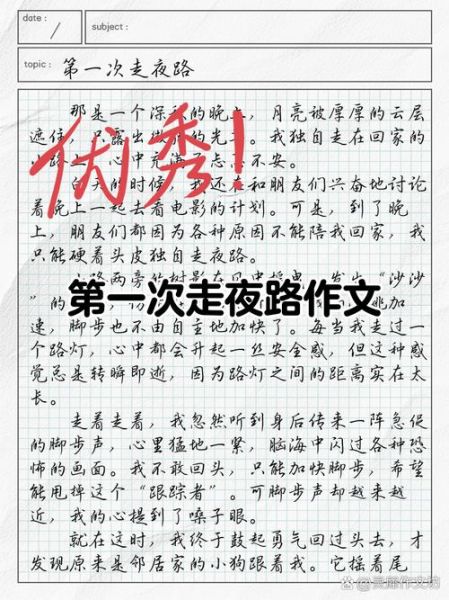 date:
subject:
topic: 第一次走夜路
那是一个深秋的晚上，月亮被厚厚的云层
遮住，只露出微弱的光芒。我独自走在回家的
小路上，心中充满了忐忑不安。
白天的时候，我还在和朋友们兴奋地讨论
着晚上一起去看电影的计划。可是，到了晚
上，朋友们都因为各种原因不能陪我回家，我
只能硬着头皮独自走夜路。
小路两旁的树影在风中摇曳，发出“沙沙
”的
加
速，脚步也不由自主地加快了。每当我走过一
个路灯，心中都会升起一丝安全感，但这种感
觉总是转瞬即逝，因为路灯之间的距离实在太
长。
走着走着，我忽然听到身后传来一阵急促
的脚步声，心里猛地一紧，脑海中闪过各种恐
怖的画面。我不敢回头，只能加快脚步，希望
能甩掉这个“跟踪者”。可脚步声却越来越
近，我的心提到了嗓子眼。
就在这时，我终于鼓起勇气回过头去，才
发现原来是邻居家的小狗跟着我。它摇着尾
优秀！
第一次走夜路作文